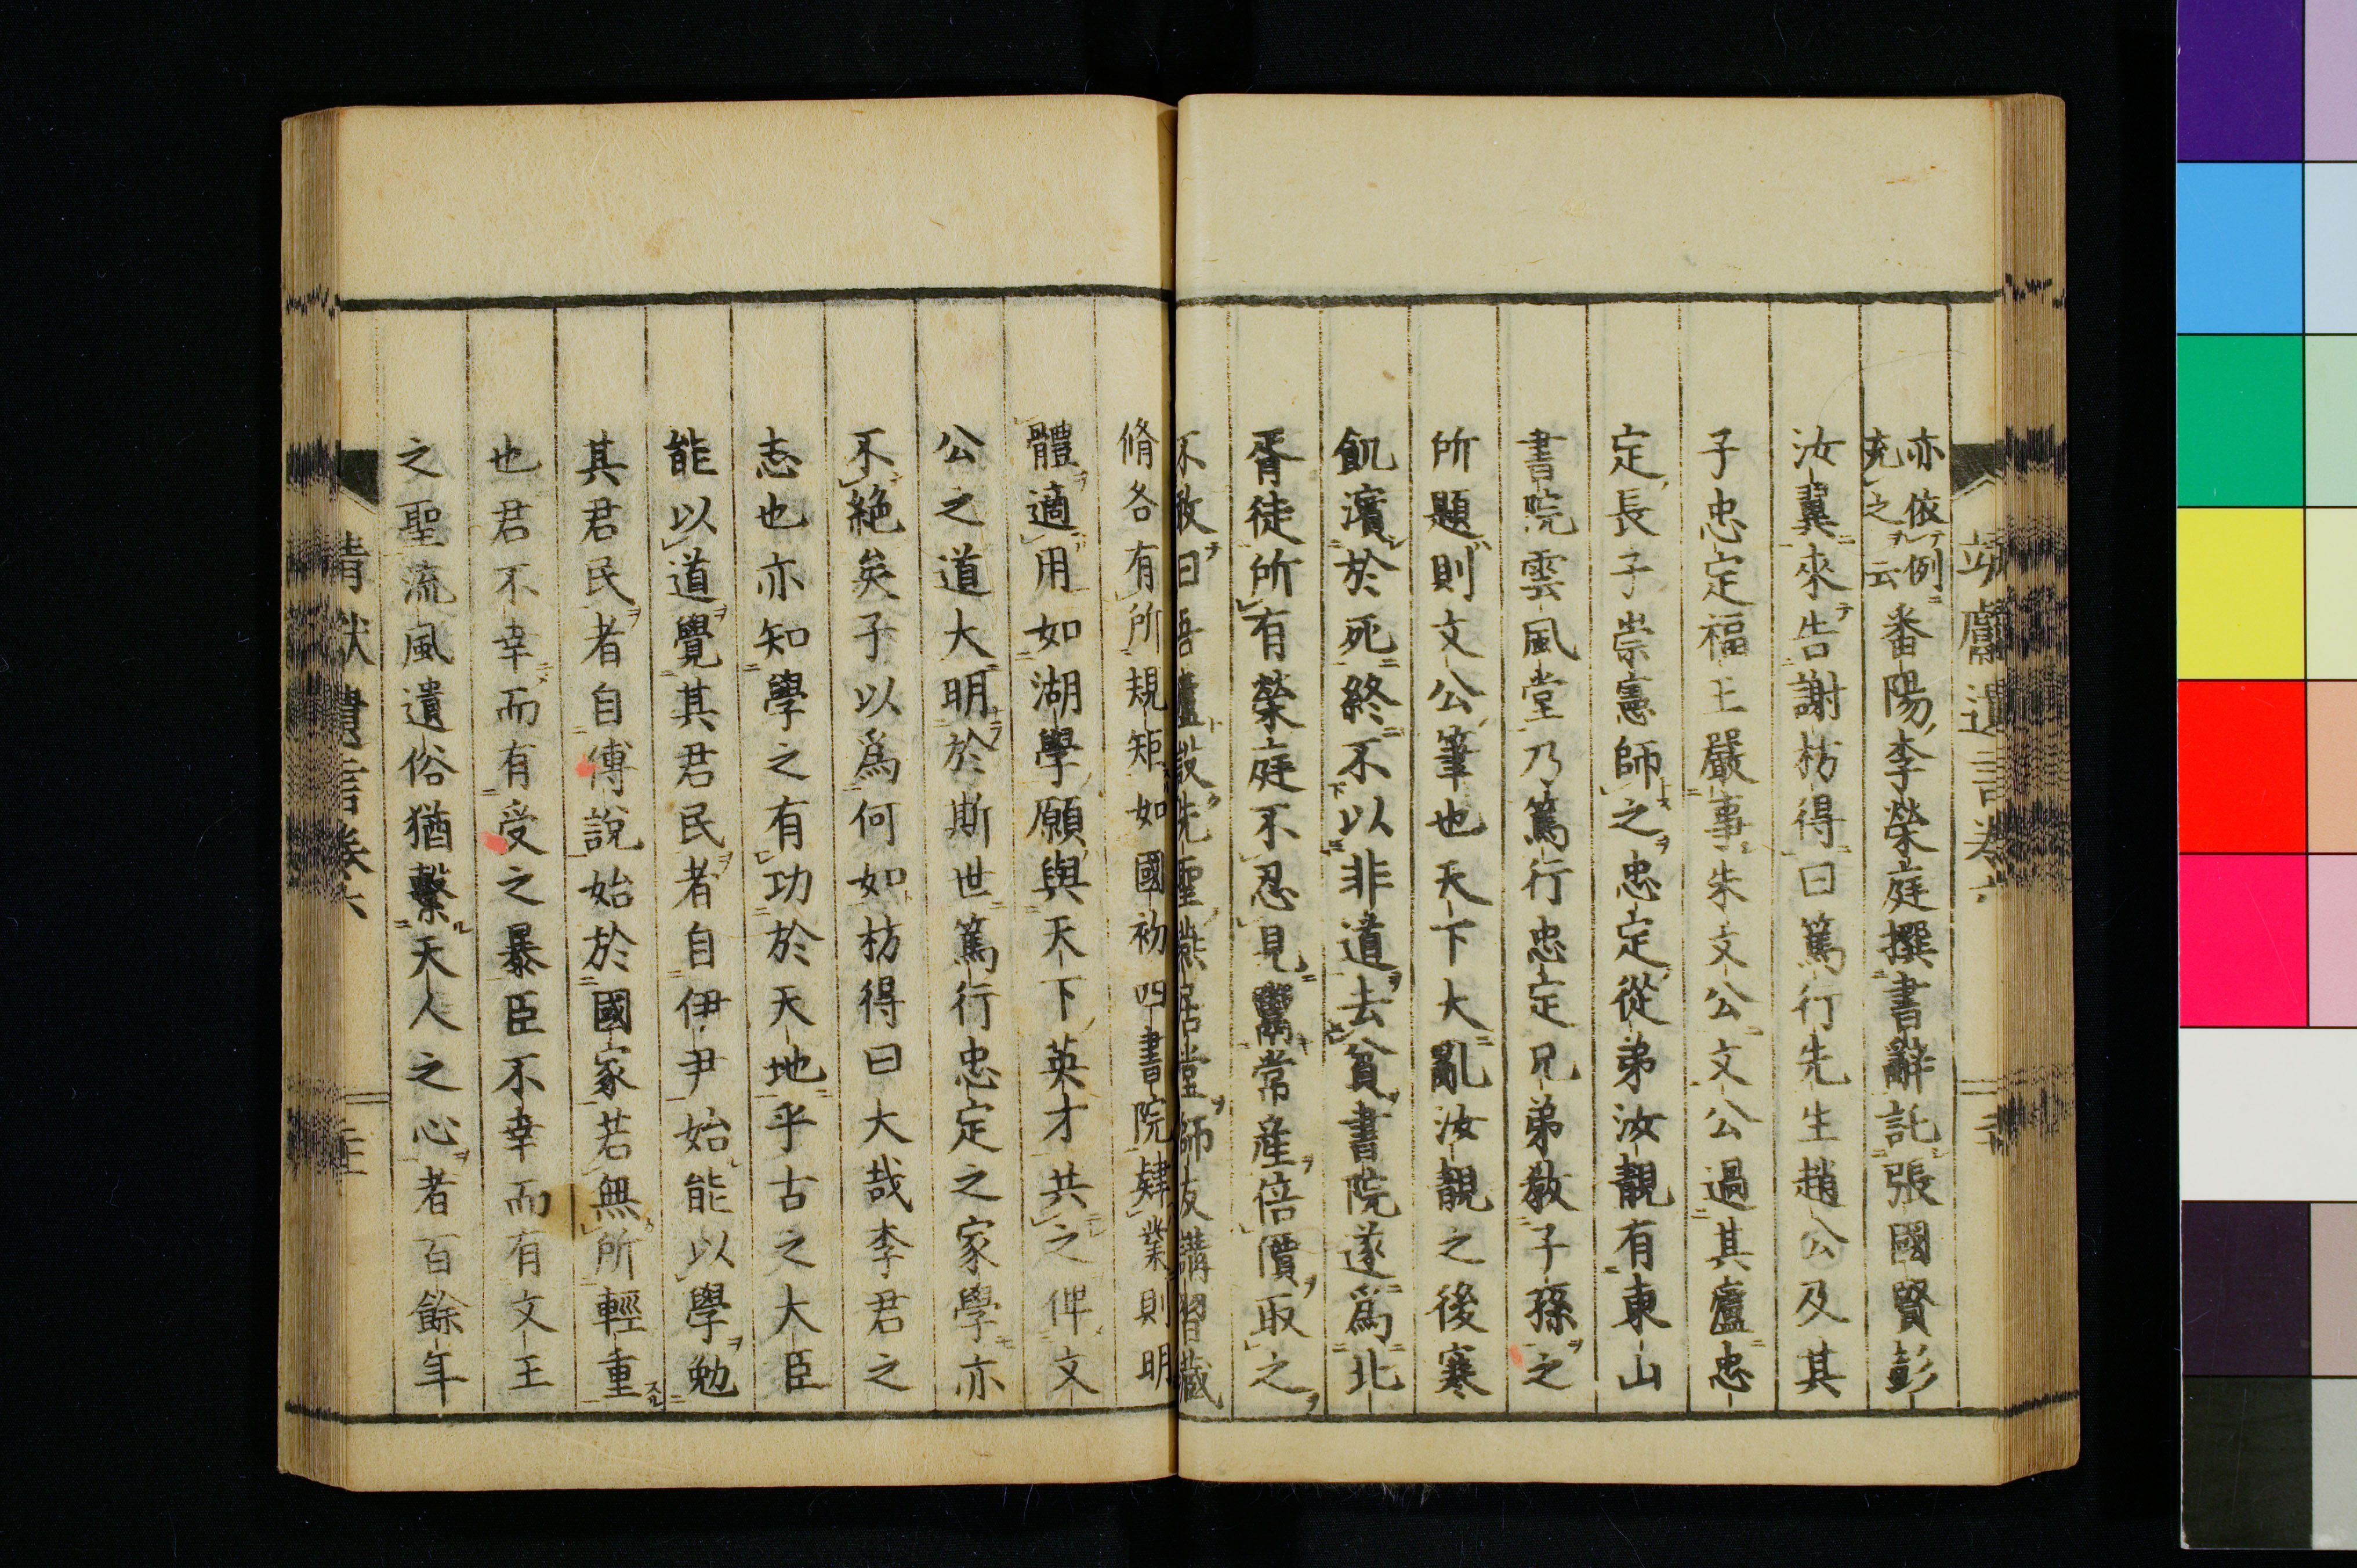 亦依例
充之云
番陽李榮庭撰書辭託張國賢彭
汝翼來告謝枋得曰篤行先生趙公及其
子忠定福王嚴事朱文公文公過其廬忠
定長子崇憲師之忠定從弟汝靚有東山
書院雲風堂乃篤行忠定兄弟教子孫之
所題則文公筆也天下大亂汝靚之後寒
飢濱於死終不以非道去貧書院遂爲北
胥徒所有榮庭不忍見鬻常產倍價取之
不敢曰吾廬設先聖燕居堂師友講習藏
脩各有所規矩如國初四書院肄業則明
體適用如湖學願與天下英才共之俾文
公之道大明於斯世篤行忠定之家學亦
不絕矣子以爲何如枋得曰大哉李君之
志也亦知學之有功於天地乎古之大臣
能以道覺其君民者自伊尹始能以學勉
其君民者自傅說始於國家若無所輕重
也君不幸而有受之暴臣不幸而有文王
之聖流風遺俗猶繫天人之心者百餘年